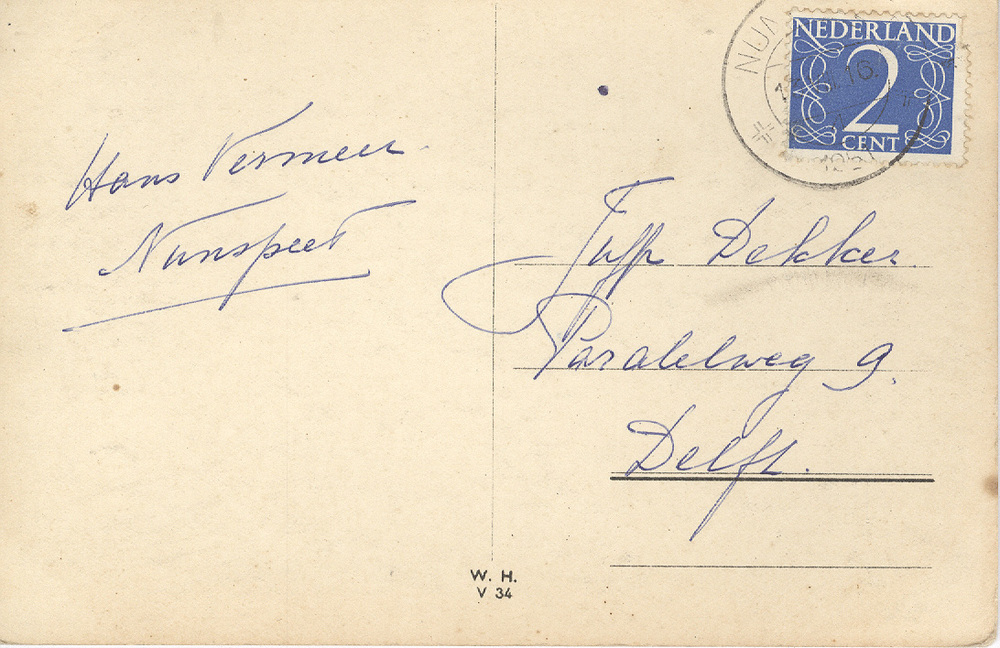 Hans Vermeer
Nunspeet
NEDERLAND
2
CENT
Juff Dekker.
Paralelweg 9.
Delft.
W. H.
V 34